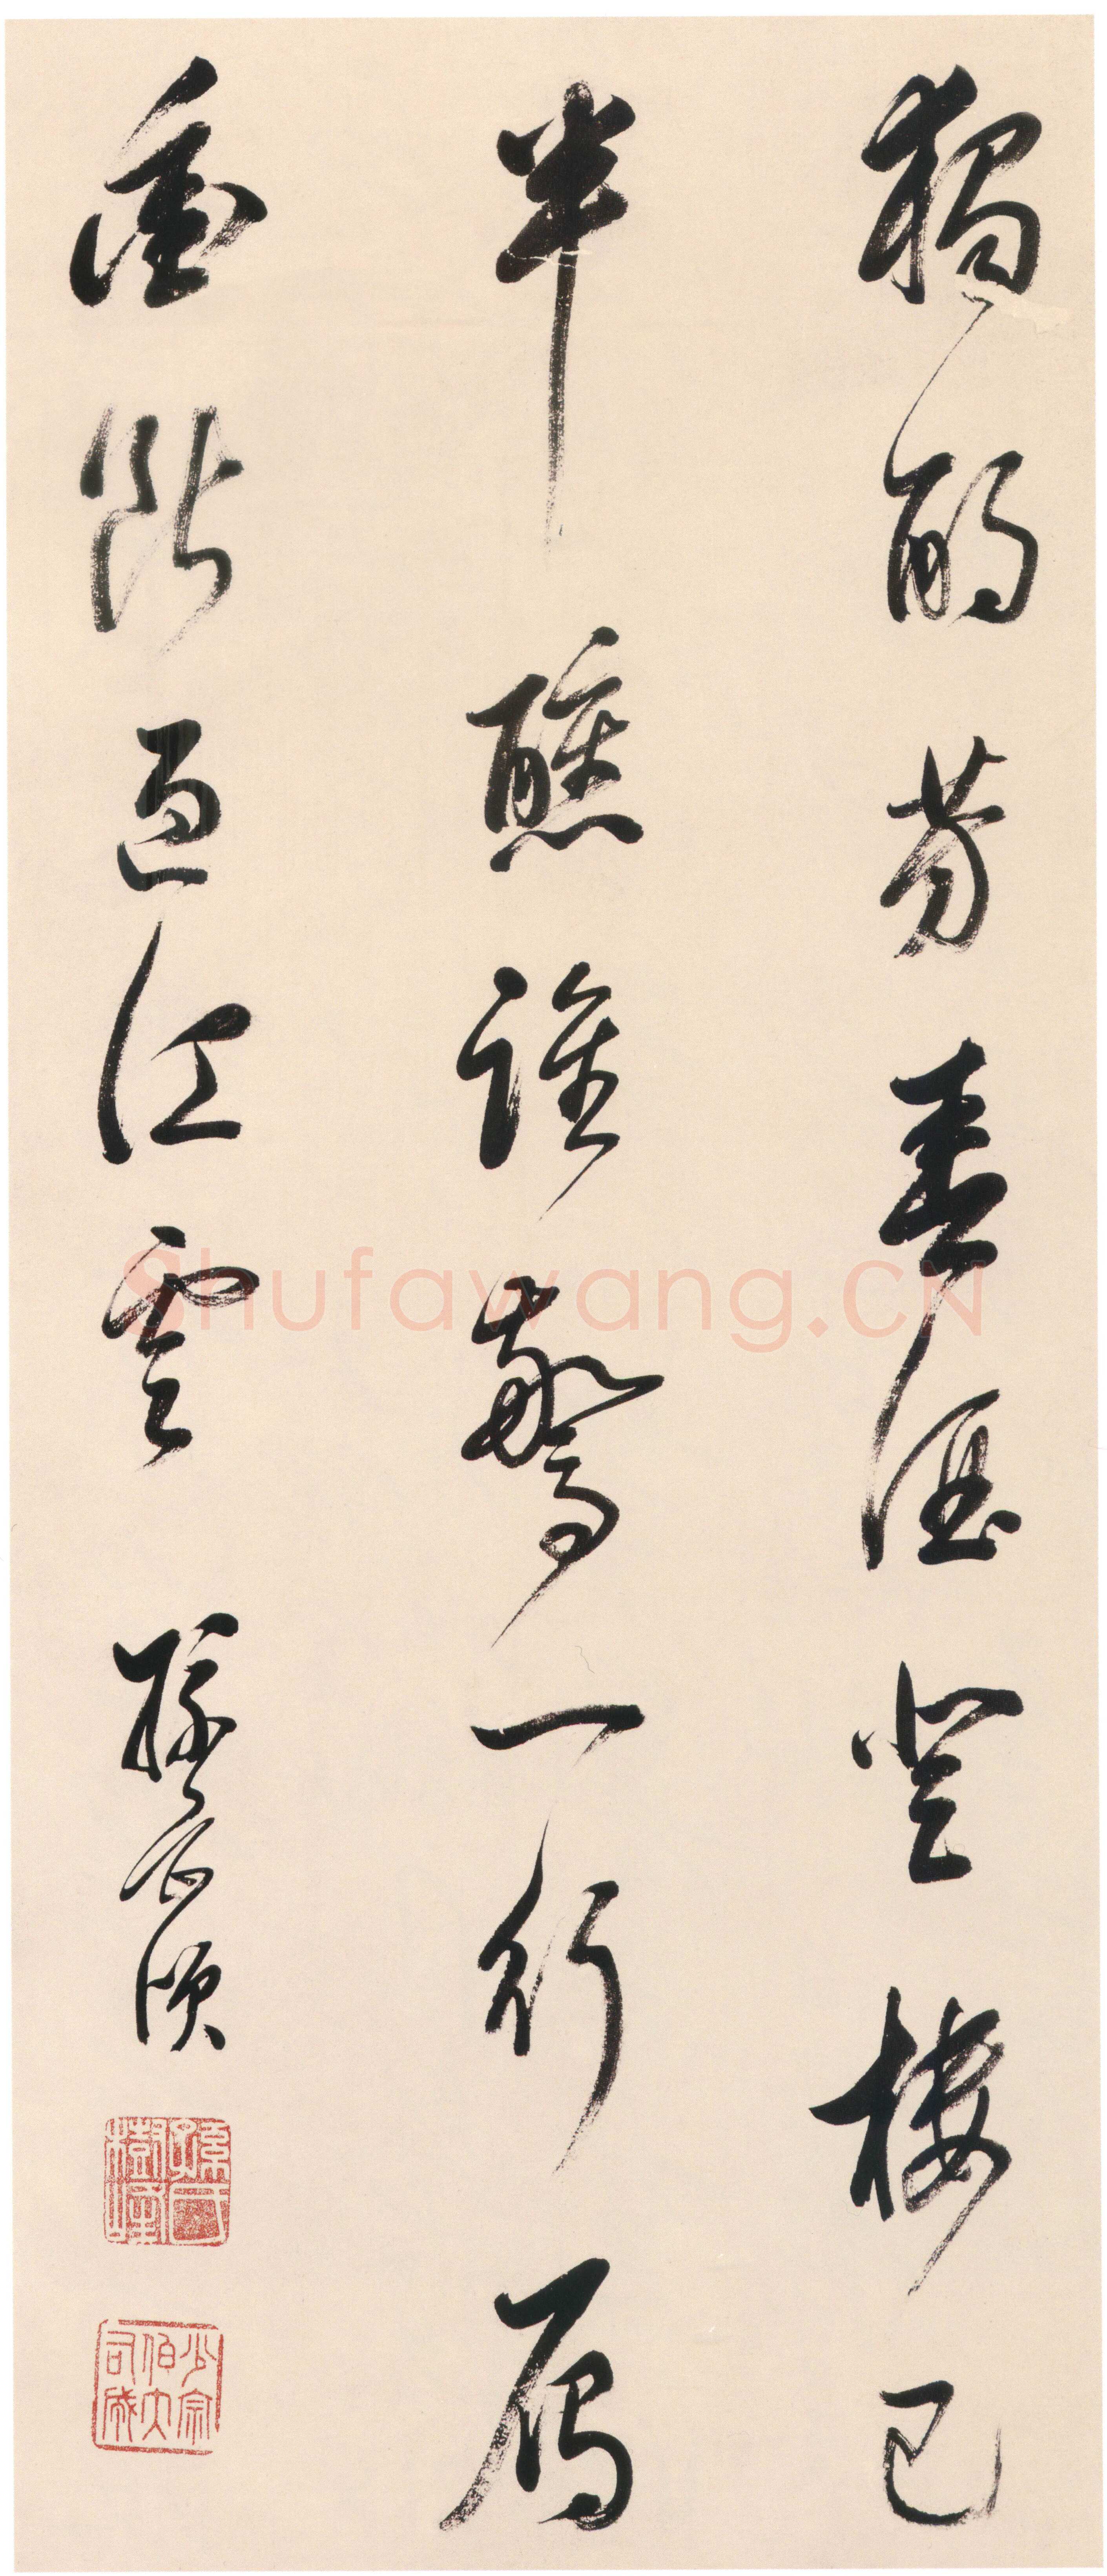 獨酌芳春酒登樓已
半醺誰驚一行雁
衝斷過江雲 孫岳頒
孫岳頒樹峰
少宗伯大司成
Shufawang.CN